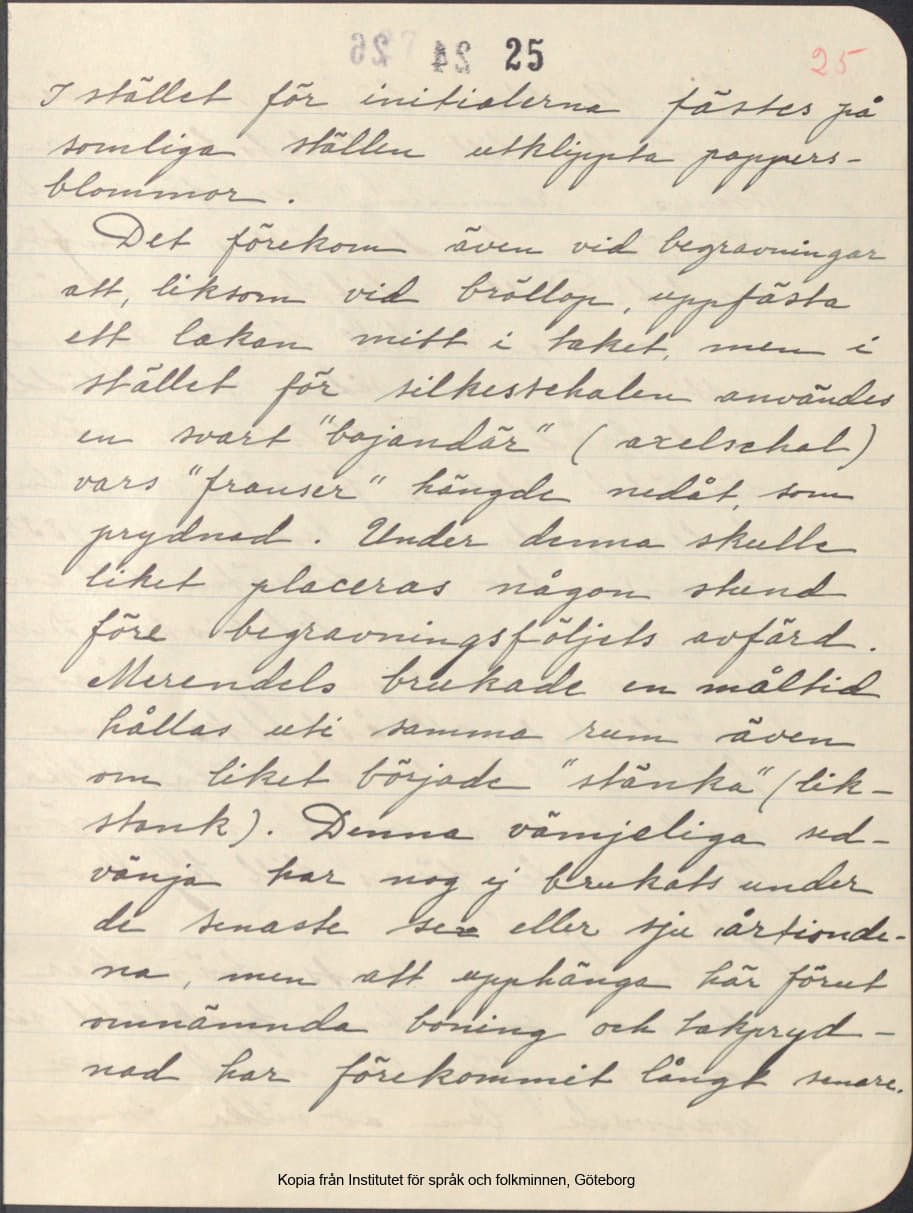 25
25
I stället för initialerna fästes på
somliga ställen utklippta pappers-
blommor.
Det förekom även vid begravningar
att, liksom vid bröllop, uppfästa
ett lakan mitt i taket, men i
stället för silkesschalen användes
en svart "bajandär" (axelschal)
vars "franser" hängde nedåt, som
prydnad. Under denna skulle
liket placeras någon stund
före begravningsföljets avfärd.
Merendels brukade en måltid
hållas uti samma rum även
om liket började "stänka" (lik-
stank). Denna vämjeliga sed-
vänja har nog ej brukats under
de senaste sex eller sju årtionde-
na, men att upphänga här förut
omnämnda boning och takpryd-
nad har förekommit långt senare.
Kopia från Institutet för språk och folkminnen, Göteborg